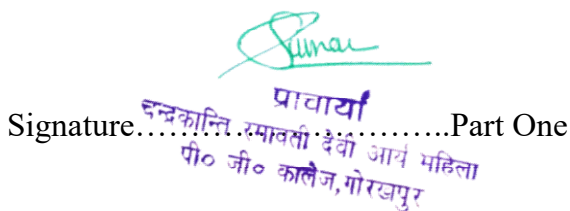 प्राचार्या
Signature…………………………..Part One
चन्द्रकान्ति रमावती देवी आर्य महिला
पी० जी० कालेज, गोरखपुर